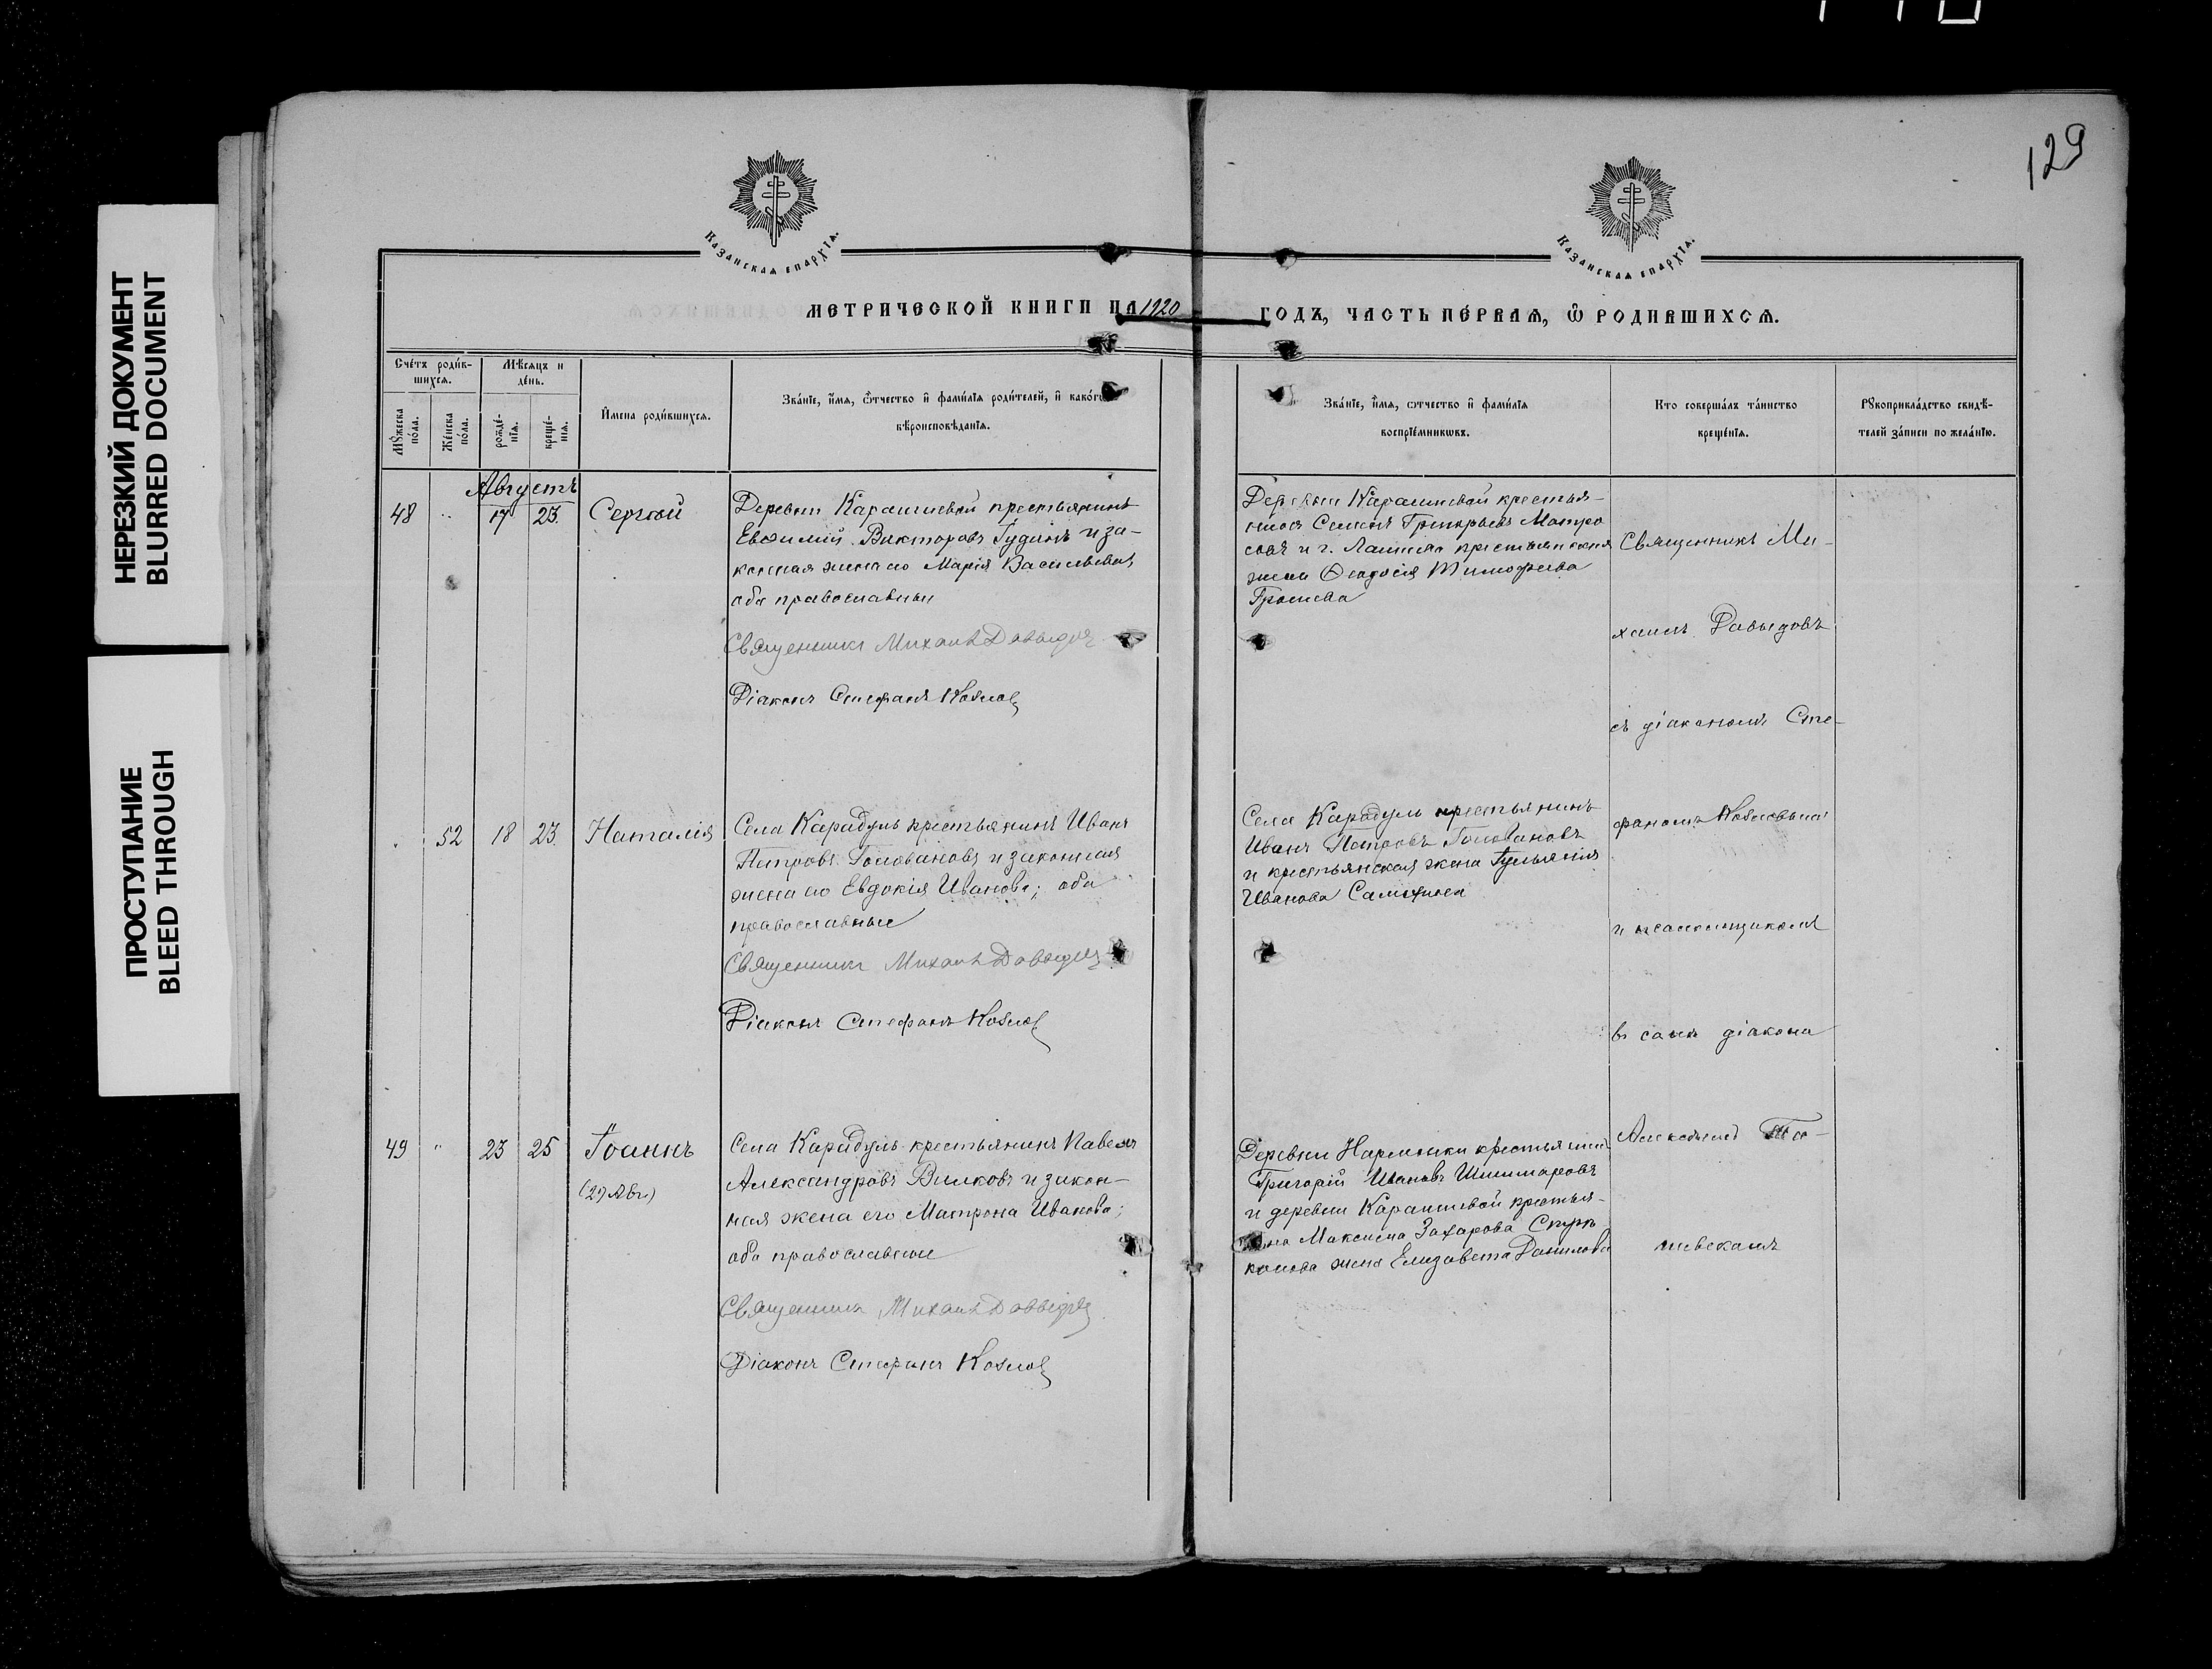 НЕРЕЗКИЙ ДОКУМЕНТ
BLURRED DOCUMENT
ПРОСТУПАНИЕ
BLEED THROUGH
129
Казанская епархїа.
Казанская епархїа.
МЕТРИЧЕСКОЙ КНИГИ НА 1920 ГОДЪ, ЧАСТЬ ПЕ́РВАЯ, Ѡ РОДИВШИХСѦ.
Сче́тъ роди́в-
шихся.
Мꙋжеска по́ла.
Же́нска по́ла.
Мѣ́сяцъ и
де́нь.
рожде́-
нїя.
креще́-
нїя.
И҆мена роди́вшихся.
Зва́нїе, и҆мя, ѻ҆тчество и҆ фами́лїя роди́телей, и҆ како́го
вѣроисповѣ́данїя.
Зва́нїе, и҆мя, ѻтчество и҆ фами́лїя
воспрїе́мникѡвъ.
Кто соверша́лъ та́инство
креще́нїя.
Рꙋкоприкла́дство свидѣ́-
телей за́писи по жела́нїю.
Августъ
48
17
23.
Сергѣй
Деревни Карашиевой крестьянинъ
Евѳимій Викторовъ Гудинъ и за-
конная жена его Марія Васильева,
оба православны
Священникъ Михаилъ Давыдовъ
Діаконъ Стефанъ Козловъ
Деревни Карашиевой крестья-
нинъ Семенъ Григорьевъ Матро
совъ и г. Лаишева крестьянская
жена Ѳеодосія Тимофеева
Священникъ Ми-
хаилъ Давыдовъ
съ діакономъ Сте-
фаномъ Козловымъ
и псаломщикомъ
въ санѣ діакона
Алексѣемъ
52
18
23.
Наталія
Села Карадуль крестьянинъ Иванъ
Петровъ Головановъ и законная
жена его Евдокія Иванова; оба
православные
Священникъ Михаилъ Давыдовъ
Діаконъ Стефанъ Козловъ
Села Карадуль крестьянинъ
Иванъ Петровъ Головановъ
и крестьянская жена
Иванова
49
23
25
Іоаннъ
(29 Авг.)
Села Карадуль крестьянинъ Павелъ
Александровъ Вилковъ и закон-
ная жена его Матрона Иванова;
оба православные
Священникъ Михаилъ Давыдовъ
Діаконъ Стефанъ Козловъ
Деревни Нармонки крестьянинъ
Григорій Ивановъ
и деревни Карашиевой крестья-
нина Максима Захарова
жена Елизавета Данилова